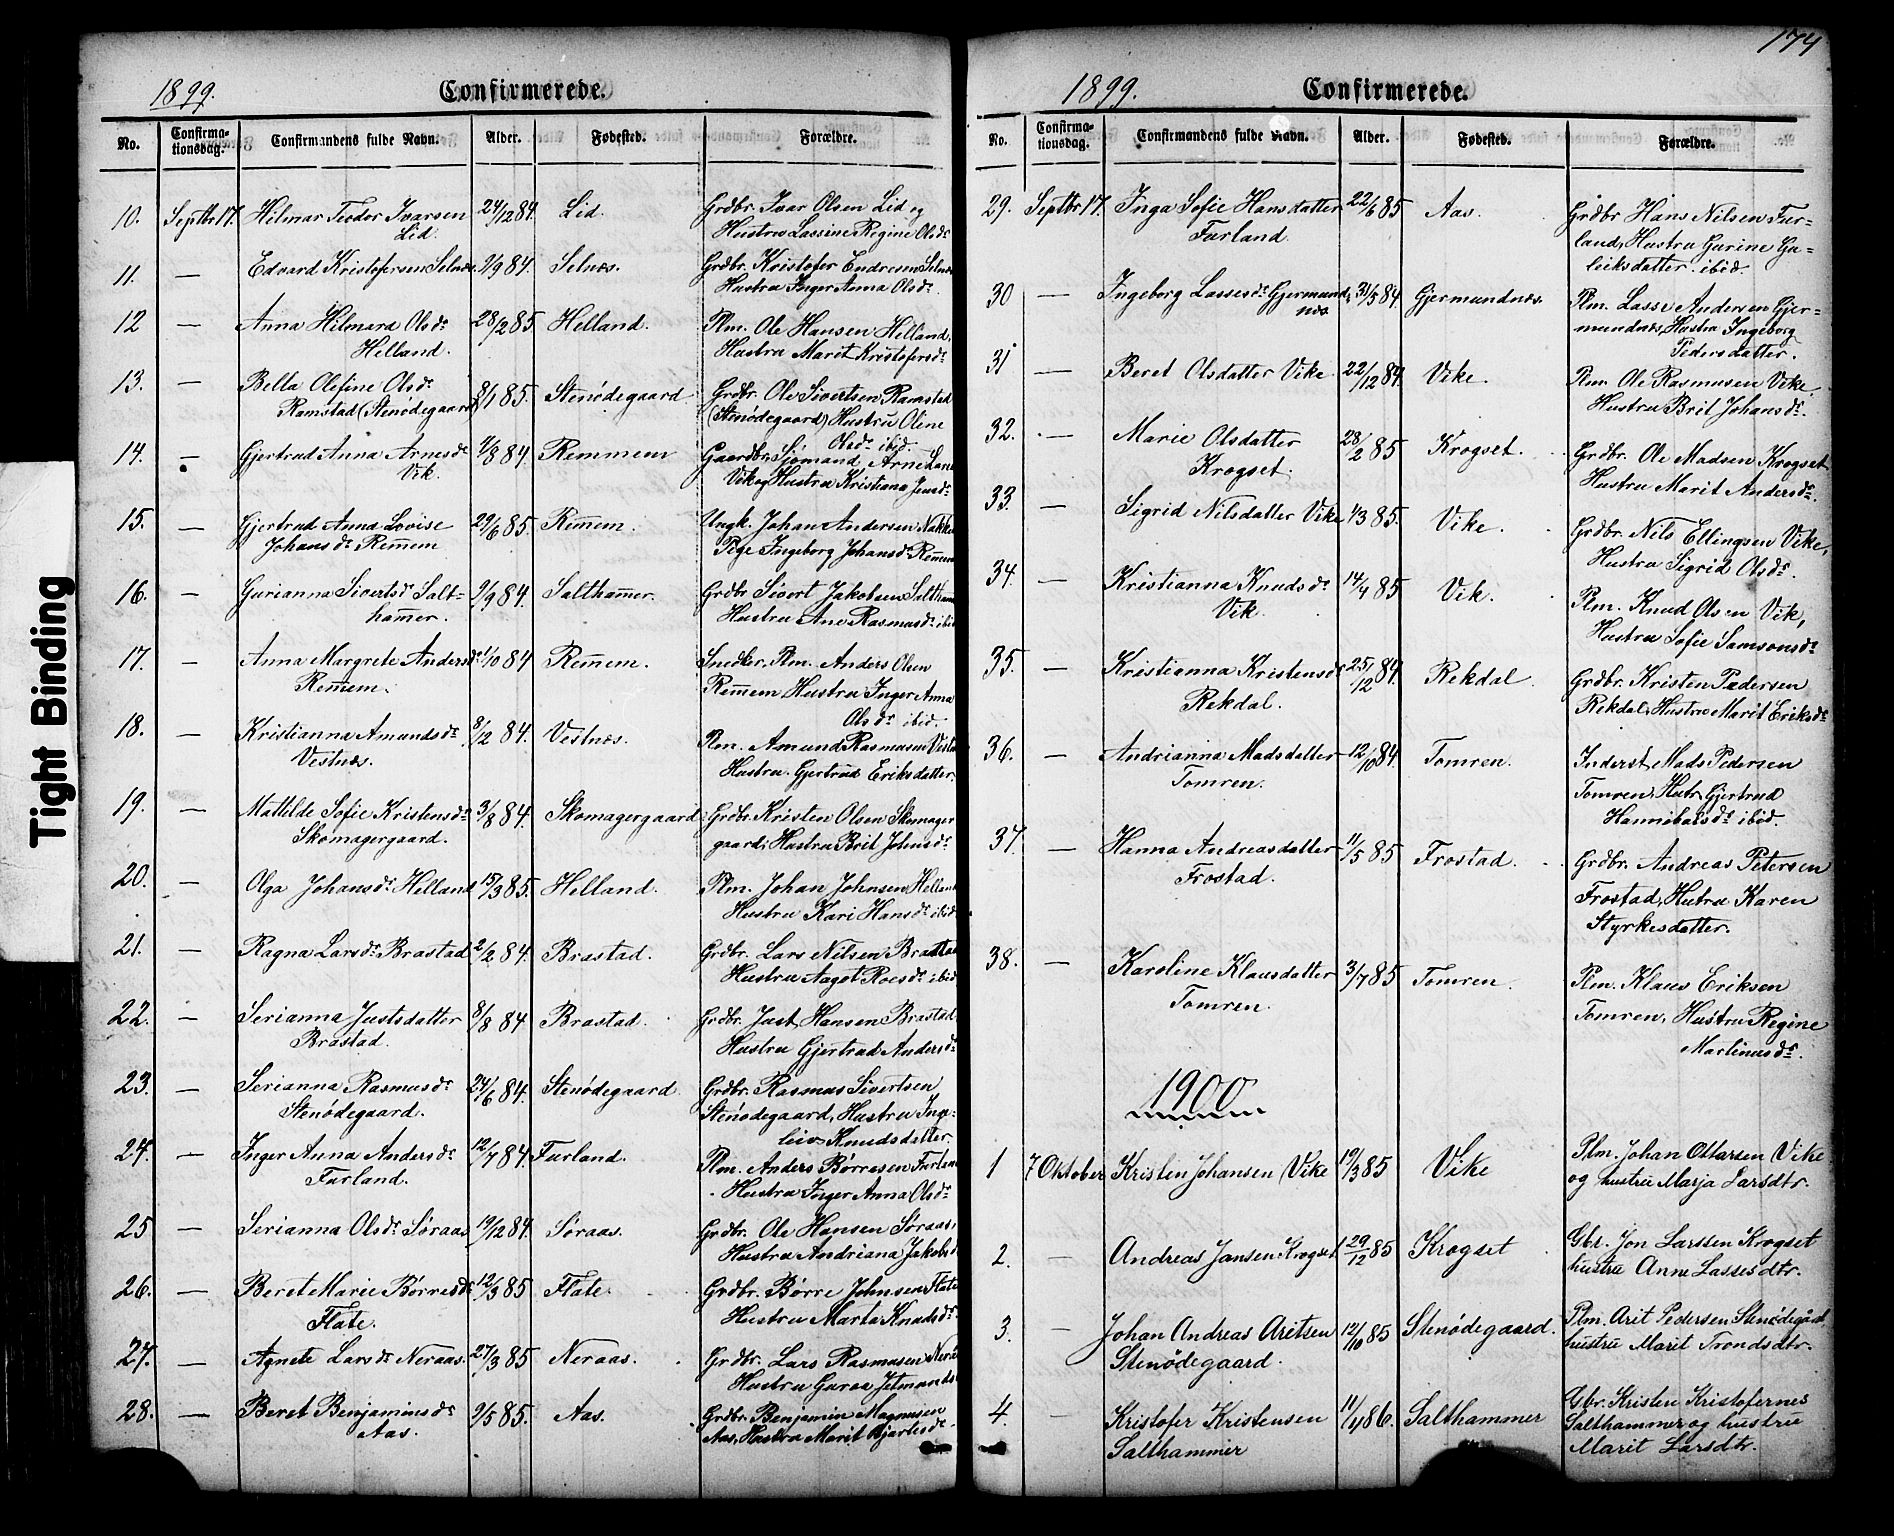 Tight Binding
1899.
Confirmerede.
No.
Confirma-
tionsdag.
Confirmandens fulde Navn.
Alder.
Fødested.
Forældre.
10. Septbr 17. Hilmar Teodor Ivarsen 24/12 84. Lid. Grdbr. Ivar Olsen Lid og
Lid. Hustru Lassine Regine Olsdr
11. — Edvard Kristofersen Selnæs. 9/9 84. Selnæs. Grdbr. Kristofer Endresen Selnæs
Hustru Inger Anna Olsdr
12 — Anna Hilmara Olsdr 28/2 85. Helland. Plm. Ole Hansen Helland,
Helland. Hustru Marit Kristofersdr
13. — Bella Olefine Olsdr 8/1 85. Stenødegaard Grdbr. Ole Sivertsen Ramstad
Ramstad (Stenødegaard) (Stenødegaard) Hustru Oline
Olsdr ibid.
14. — Gjertrud Anna Arnesdr 7/8 84. Remmem Gaardbr. Sjømand, Arne
Vik. Vik og Hustru Kristiana Jensdr
15. — Gjertrud Anna Lovise 29/6 85. Rem̅em. Ungk. Johan Andersen
Johansdr Rem̅em Pige Ingeborg Johansdr Rem̅em
16. — Gurianna Sivertsdr Salt- 9/9 84. Saltham̅er. Grdbr Sivert Jakobsen Saltham̅
ham̅er. Hustru Ane Rasmusdr ibid
17. — Anna Margrete Andersdr 1/10 84 Rem̅em. Snedker. Plm. Anders Olsen
Rem̅em. Rem̅em Hustru Inger Anna
Olsdr ibid.
18. — Kristianna Amundsdr 8/12 84. Vestnæs. Plm. Amund Rasmusen
Vestnæs. Hustru. Gjertrud Eriksdatter.
19. — Matilde Sofie Kristensdr 3/8 84. Skomagergaard. Grdbr. Kristen Olsen Skomager
Skomagergaard. gaard; Hustru Brit Johnsdr
20. — Olga Johansdr Helland 15/3 85. Helland. Plm. Johan Johnsen Helland
Hustru Kari Hansdr ibid
21. — Ragna Larsdr Brastad 2/2 84. Brastad. Grdbr. Lars Nilsen Brastad
Hustru Aagot Roesdr ibid
22. — Serianna Justsdatter 8/8 84 Brastad. Grdbr. Just Hansen Brastad
Brastad. Hustru Gjertrud Andersdr
23. — Serianna Rasmusdr 24/6 84. Stenødegaard Grdbr. Rasmus Sivertsen
Stenødegaard. Stenødegaard, Hustru Inge-
leiv Knudsdatter.
24. — Inger Anna Andersdr 12/7 84. Furland. Plm. Anders Børresen Furland
Furland. Hustru Inger Anna Olsdr
25 — Serianna Olsdr Søraas 19/12 84. Søraas. Grdbr. Ole Hansen Søraas,
Hustru Andriana Jakobsd
26. — Beret Marie Børresdr 12/3 85 Flate. Grdbr. Børre Johnsen Flate
Flate. Hustru Marta Knudsdr
27. — Agnete Larsdr Neraas. 27/3 85 Neraas. Grdbr. Lars Rasmusen
Hustru Guroa Jetmunds
28. — Beret Benjaminsdr 9/5 85. Aas. Grdbr. Benjamin Magnusen
Aas. Aas, Hustru Marit Bjartesdr
174
1899.
Confirmerede.
No.
Confirma-
tionsdag.
Confirmandens fulde Navn.
Alder.
Fødested.
Forældre.
29. Septbr 17. Inga Sofie Hansdatter 22/6 85 Aas. Grdbr Hans Nilsen Fur-
Furland. land, Hustru Gurine Gu-
leiksdatter ibid.
30 — Ingeborg Lassesdr Gjermund- 31/5 84. Gjermundnæs. Plm. Lasse Andersen Gjer-
næs. mundnæs, Hustru Ingeborg
Pedersdatter.
31 — Beret Olsdatter Vike 22/12 84. Vike. Plm. Ole Rasmusen Vike,
Hustru Brit Johansdr.
32. — Marie Olsdatter 28/2 85 Krogset. Grdbr. Ole Madsen Krogset
Krogset. Hustru Marit Andersdr.
33. — Sigrid Nilsdatter Vike 1/3 85. Vike. Grdbr. Nils Ellingsen Vike,
Hustru Sigrid Olsdr.
34. — Kristianna Knudsdr 14/4 85 Vik. Plm. Knud Olsen Vik,
Vik. Hustru Sofie Samsonsdr
35. — Kristianna Kristensdr 25/12 84. Rekdal. Grdbr. Kristen Pedersen
Rekdal. Rekdal, Hustru Marit Eriksdr
36. — Andrianna Madsdatter 12/10 84. Tomren. Inderst, Mads Pedersen
Tomren. Tomren, Hustr. Gjertrud
Hannibalsdr ibid.
37. — Hanna Andreasdatter 11/5 85 Frostad. Grdbr. Andreas Petersen
Frostad. Frostad, Hustru Karen
Styrkesdatter.
38. — Karoline Klausdatter 3/7 85 Tomren. Plm. Klaus Eriksen
Tomren. Tomren, Hustru Regine
Martinusdr.
1900
1 7 Oktober Kristen Johansen Vike 19/3 85 Vike Plm. Johan Ottarsen Vike
og hustru Marja Larsdtr.
2. — Andreas Jansen Krogset 29/12 85 Krogset Gbr. Jon Larssen Krogset
hustru Anne Lassesdtr.
3. — Johan Andreas Aritsen 12/10 85 Stenødegaard. Plm. Arit Pedersen Stenødegård
Stenødegaard. hustru Marit Trondsdtr.
4. — Kristofer Kristensen 11/4 86. Salthammer Gbr. Kristen Kristofernes
Salthammer Salthammer og hustru
Marit Larsdtr.